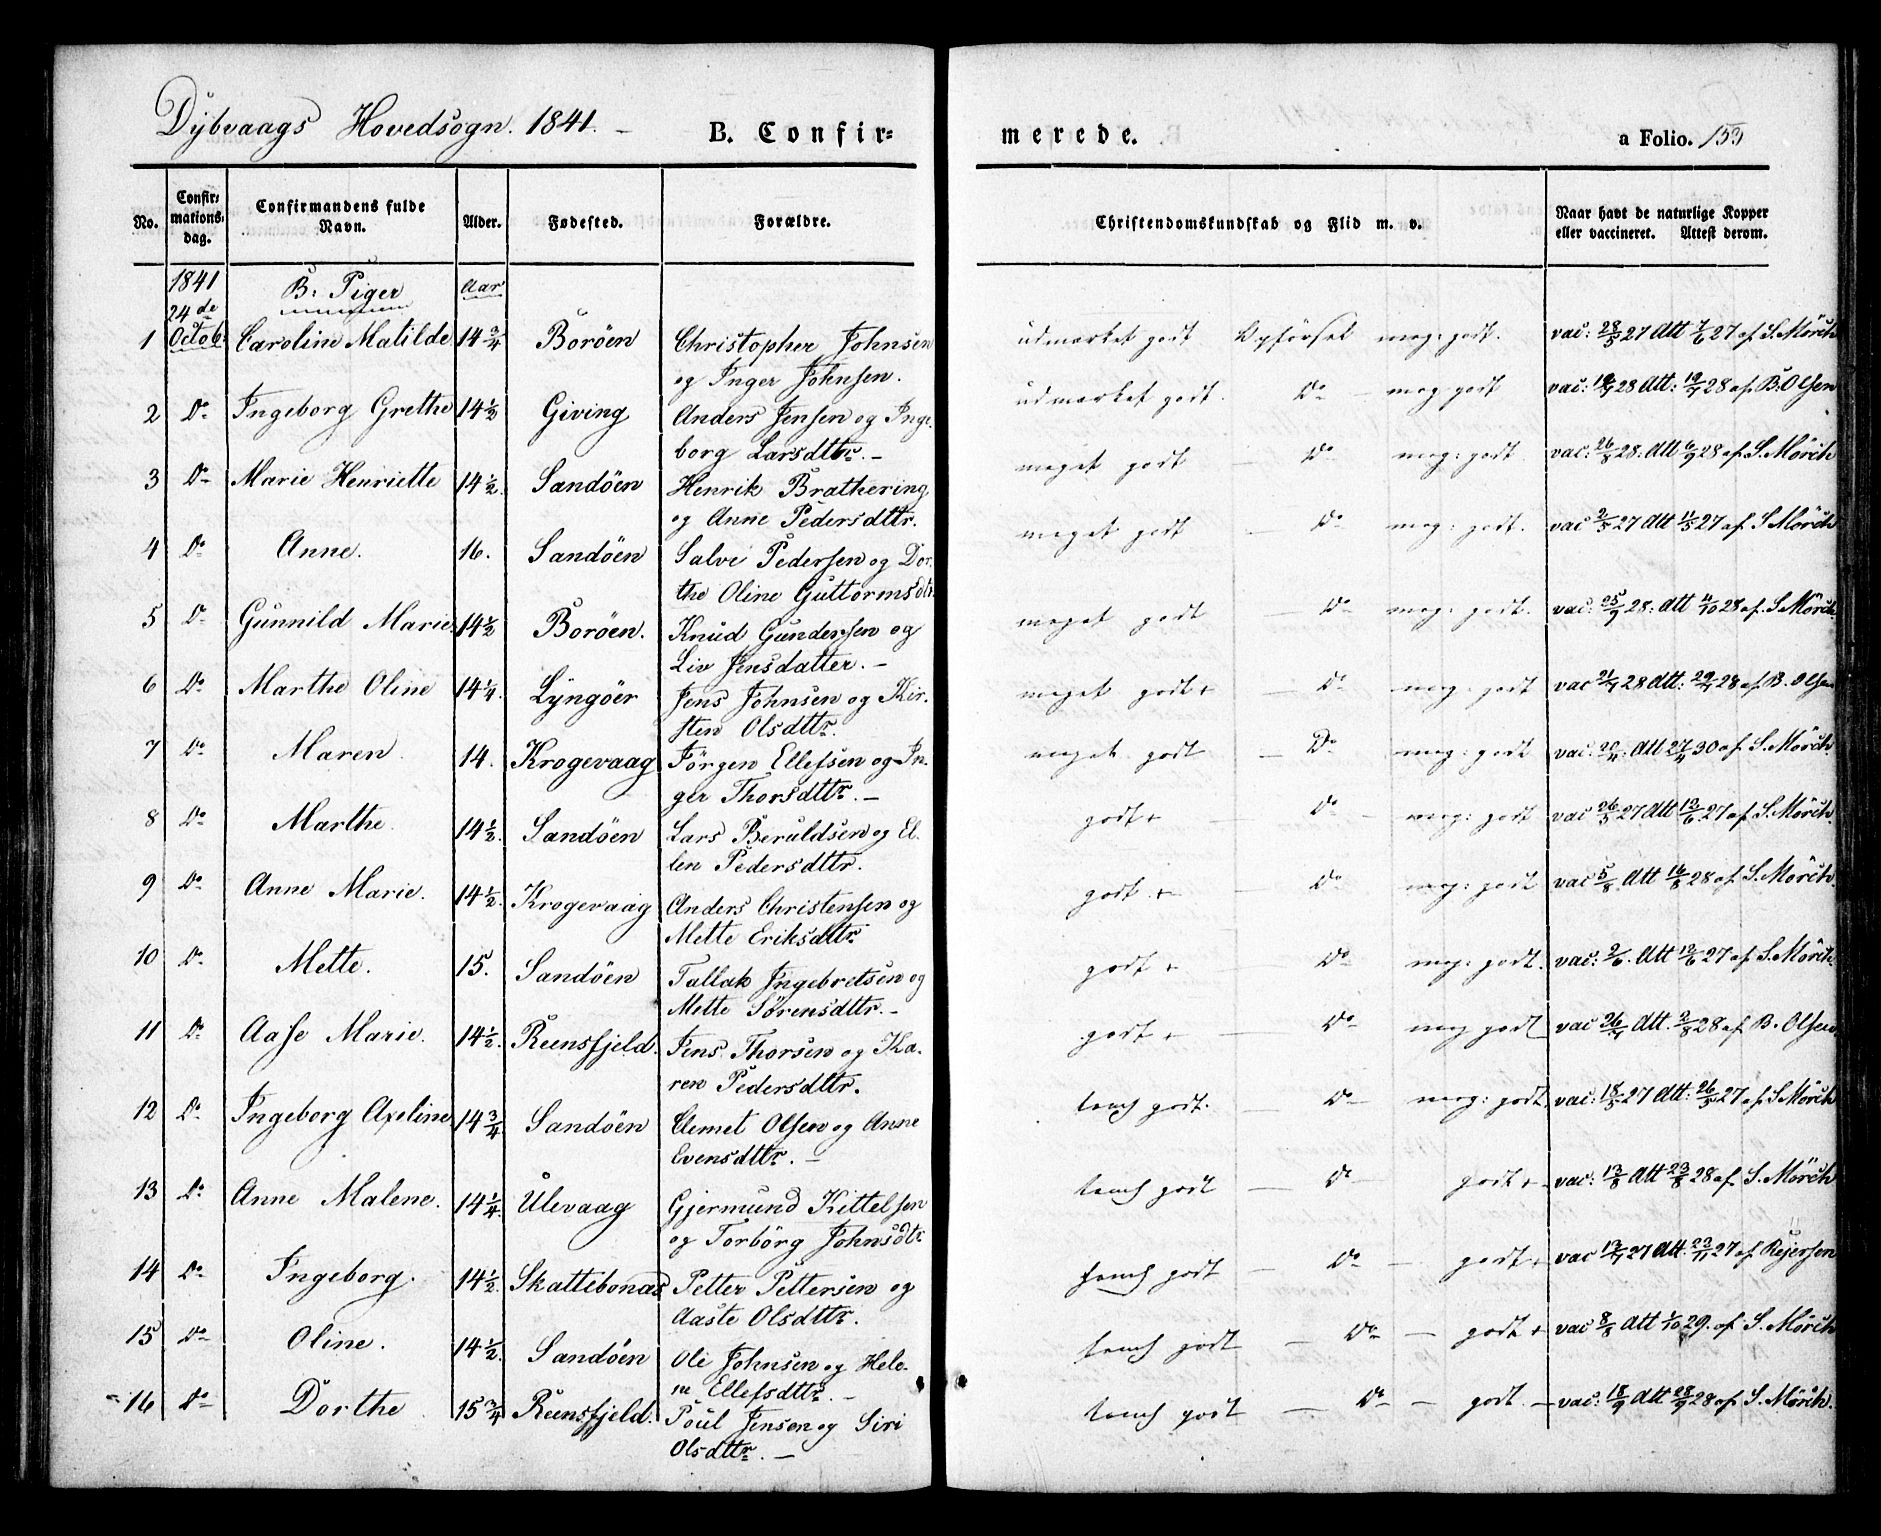 Dybvaags Hovedsogn. 1841. — B. Confir= merede. a Folio. 153
No. | Confirmations-dag. | Confirmandens fulde Navn. | Alder. | Fødested. | Forældre. | Christendomskundskab og Flid m. v. | Naar havt de naturlige Kopper eller vaccineret. Attest derom.
1841 24de Octob: | B: Piger | Aar
1 | Caroline Matilde | 14 3/4 | Boröen | Christopher Johnsen og Inger Johnsen. | udmærket godt Opførsel meg: godt. | vac: 28/5 27 Att 7/6 27 af S. Mörch
2 | Do | Ingeborg Grethe | 14 1/2 | Giving | Anders Jensen og Ingeborg Larsdttr. — | udmærket godt. Do — meg godt | 28 Att: 28 af B. Olsen
3 | Do | Marie Henriette | 14 1/2. | Sandöen | Henrik Brathering og Anne Pedersdttr. | meget godt — Do meg: godt | vac: 26/8 28. Att 6/9 28 af S. Mörch
4 | Do | Anne. | 16. | Sandöen | Salve Pedersen og Dorthe Oline Guttormsdtr. | meget godt — Do — meg: godt. | vac 2/5 27 Att 11/5 27 af S Mörch
5 | Do | Gunnild Marie | 14 1/2 | Boröen. | Knud Gundersen og Liv Jensdatter. — | meget godt — Do meg: godt. | vac: 25/9 28. Att 4/10 28 af S Mörch.
6 | Do | Marthe Oline | 14 1/4. | Lyngöer | Jens Johnsen og Kirsten Olsdttr. | meget godt + — Do — meg: godt | vac 21/7 28 Att: 29/7 28 af B. Olsen
7 | Do | Maren. | 14. | Krogevaag | Jörgen Ellefsen og Inger Thorsdttr. — | meget godt — Do meg: godt | vac: 20/11. Att 27/11 30 af S. Mörch.
8 | Do | Marthe. | 14 1/2. | Sandöen | Lars Beruldsen og Ellen Pedersdttr. | godt + — Do — meg: godt | vac 26/5 27 Att 13/6 27 af S. Mörch.
9 | Do | Anne Marie. | 14 1/2. | Krogevaag | Anders Christensen og Mette Eriksdttr | godt + — Do — meg: godt | vac 5/8 Att 16/8 28 af S. Mörch.
10 | Do | Mette. | 15. | Sandöen | Tallak Ingebretsen og Mette Sörensdttr. — | godt + — Do — meg: godt. | vac: 2/6. Att 13/6 27 af S. Mörch.
11 | Do | Aase Marie. | 14 1/2. | Reensfjeld. | Jens Thorsen og Karen Pedersdttr. | godt + — Do — meg godt | vac 26/7 Att. 2/8 28 af B. Olsen
12 | Do | Ingeborg Axeline | 14 3/4 | Sandöen | Clemet Olsen og Anne Evensdttr. — | temk godt. — Do — meg: godt. | vac: 18/5 27 Att: 26/5 27 af S Mörch
13 | Do | Anne Malene. | 14 1/4. | Ulevaag | Gjermund Kittelsen og Torbörg Johnsdtr | temk godt — Do — godt + | vac: 13/8 Att 23/8 28 af S. Mörch
14 | Do | Ingeborg. | 14 1/2. | Skattebonas | Petter Pettersen og Aaste Olsdttr. | temk godt — Do — godt + | vac 27 Att. 23/11 27 af Rejersen
15 | Do | Oline. | 14 1/2. | Sandöen | Ole Johnsen og Helene Ellefsdttr. — | temk godt — Do — godt + | vac 8/8 Att 1/10 29. af S. Mörch
16 | Do | Dorthe | 15 3/4 | Reensfjeld. | Poul Jensen og Siri Olsdttr. — | temk godt — Do — godt. — | vac: 18/9 Att 28/9 28 af S. Mörch.